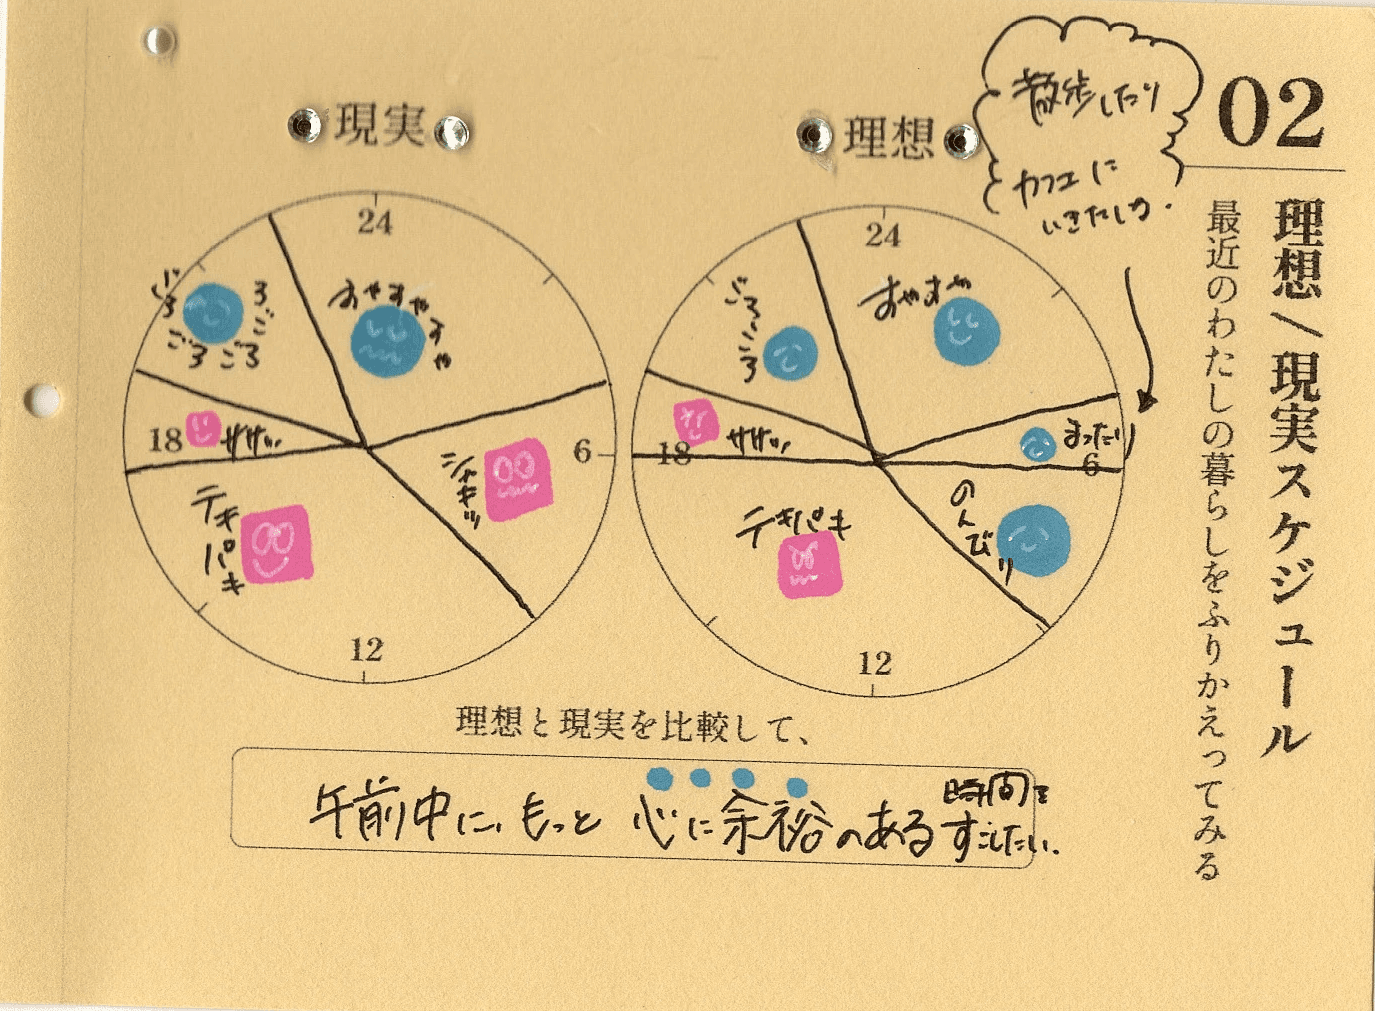 02
理想/現実スケジュール
最近のわたしの暮らしをふりかえってみる
散歩したり
カフェに
いきたしの.
理想
24
すやすや
まったり
6
のんびり
12
テキパキ
18
ササッ
ごろごろ
現実
24
すやすやすや
6
シャキッ
12
テキパキ
18
ササッ
ごろごろごろごろ
理想と現実を比較して、
午前中に、もっと心に余裕のある時間をすごしたい.